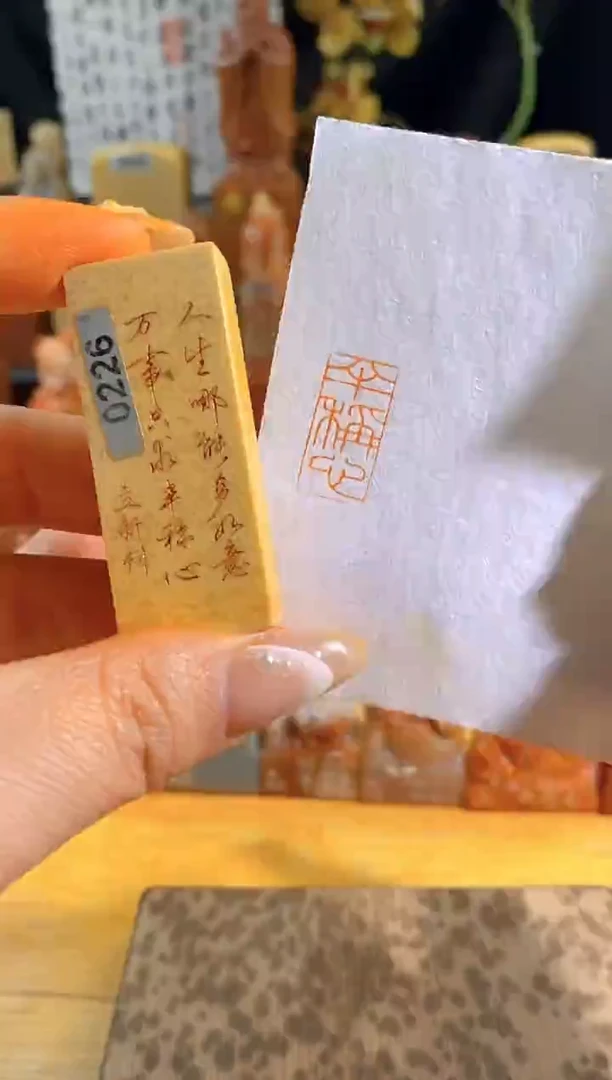 人生哪能多如意
万事只求半称心
立新刻
0226
半稱心